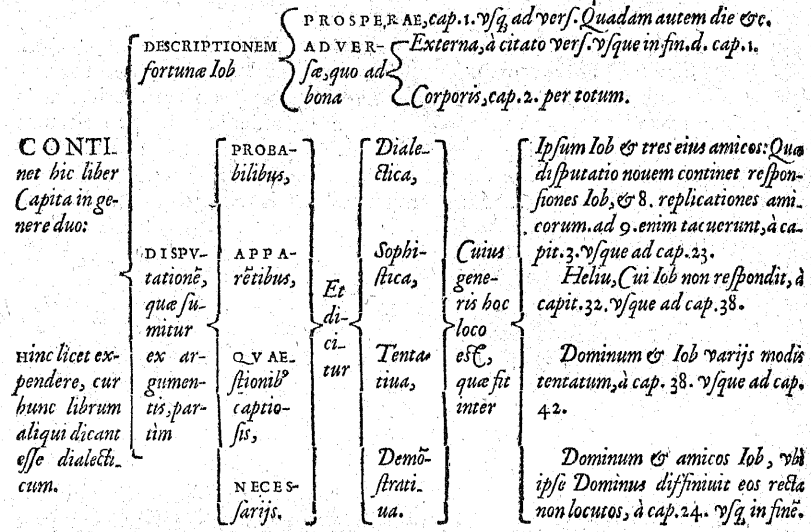 CONTI-
net hic liber
Capita in ge-
nere duo:
HINC licet ex-
pendere, cur
hunc librum
aliqui dicant
esse dialecti-
cum.
DESCRIPTIONEM
fortunæ Iob
PROSPERAE, cap. 1. vsq; ad vers. Quadam autem die &c.
ADVER-
sæ, quo ad
bona
Externa, à citato vers. vsque in fin. d. cap. 1.
Corporis, cap. 2. per totum.
DISPV-
tationẽ,
quæ su-
mitur
ex ar-
gumen-
tis, par-
tìm
PROBA-
bilibus,
APPA-
rẽtibus,
QVAE-
stionibꝰ
captio-
sis,
NECES-
sarijs.
Et
di-
ci-
tur
Diale-
ctica,
Sophi-
stica,
Tenta-
tiua,
Demõ-
strati-
ua.
Cuius
gene-
ris hoc
loco
est,
quæ fit
inter
Ipsum Iob & tres eius amicos: Quæ
disputatio nouem continet respon-
siones Iob, & 8. replicationes ami-
corum. ad 9. enim tacuerunt, à ca-
pit. 3. vsque ad cap. 23.
Heliu, Cui Iob non respondit, à
capit. 32. vsque ad cap. 38.
Dominum & Iob varijs modis
tentatum, à cap. 38. vsque ad cap.
42.
Dominum & amicos Iob, vbi
ipse Dominus diffiniuit eos recta
non locutos, à cap. 24. vsq; in finẽ.